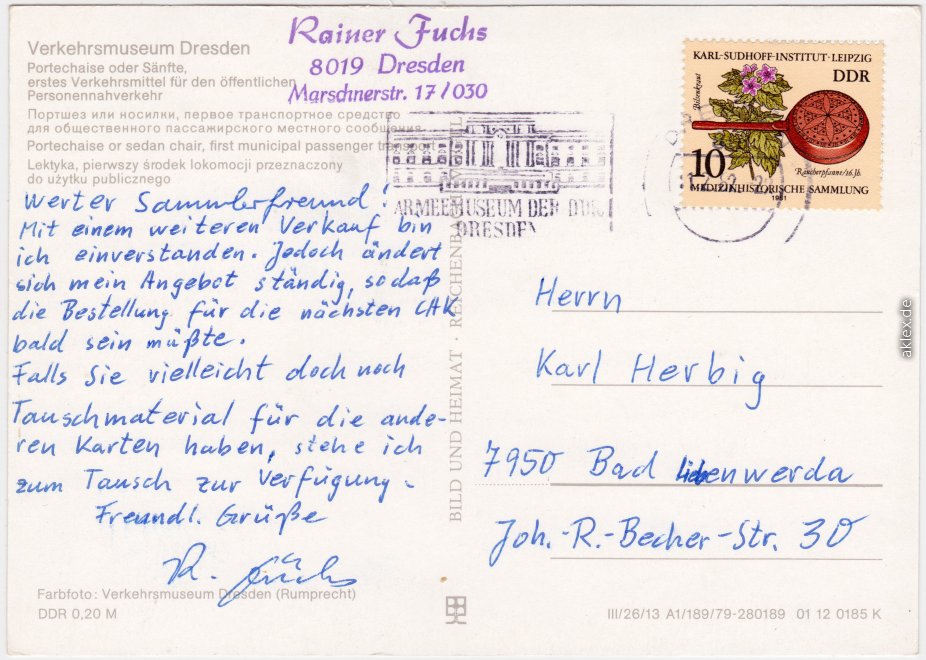 Verkehrsmuseum Dresden
Portechaise oder Sänfte,
erstes Verkehrsmittel für den öffentlichen
Personennahverkehr
Портшез или носилки, первое транспортное средство
для общественного пассажирского местного сообщения
Portechaise or sedan chair, first municipal passenger transport
Lektyka, pierwszy środek lokomocji przeznaczony
do użytku publicznego
Rainer Fuchs
8019 Dresden
Marschnerstr. 17/030
ARMEEMUSEUM DER DDR
DRESDEN
KARL-SUDHOFF-INSTITUT·LEIPZIG
DDR
Bilsenkraut
10
Räucherpfanne/16.Jh.
MEDIZINHISTORISCHE SAMMLUNG
1981
Werter Sammlerfreund!
Mit einem weiteren Verkauf bin
ich einverstanden. Jedoch ändert
sich mein Angebot ständig, sodaß
die Bestellung für die nächsten
bald sein müßte.
Falls Sie vielleicht doch noch
Tauschmaterial für die ande-
ren Karten haben, stehe ich
zum Tausch zur Verfügung.
Freundl. Grüße
R. Fuchs
Herrn
Karl Herbig
7950 Bad Liebenwerda
Joh.-R.-Becher-Str. 30
BILD UND HEIMAT · REICHENBACH
Farbfoto: Verkehrsmuseum Dresden (Rumprecht)
DDR 0,20 M
III/26/13 A1/189/79-280189 01 12 0185 K
aklex.de